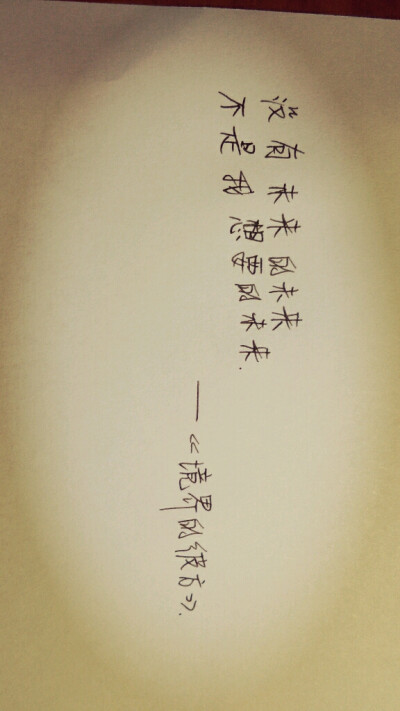 没有未来的未来
不是我想要的未来.
——《境界的彼方》.